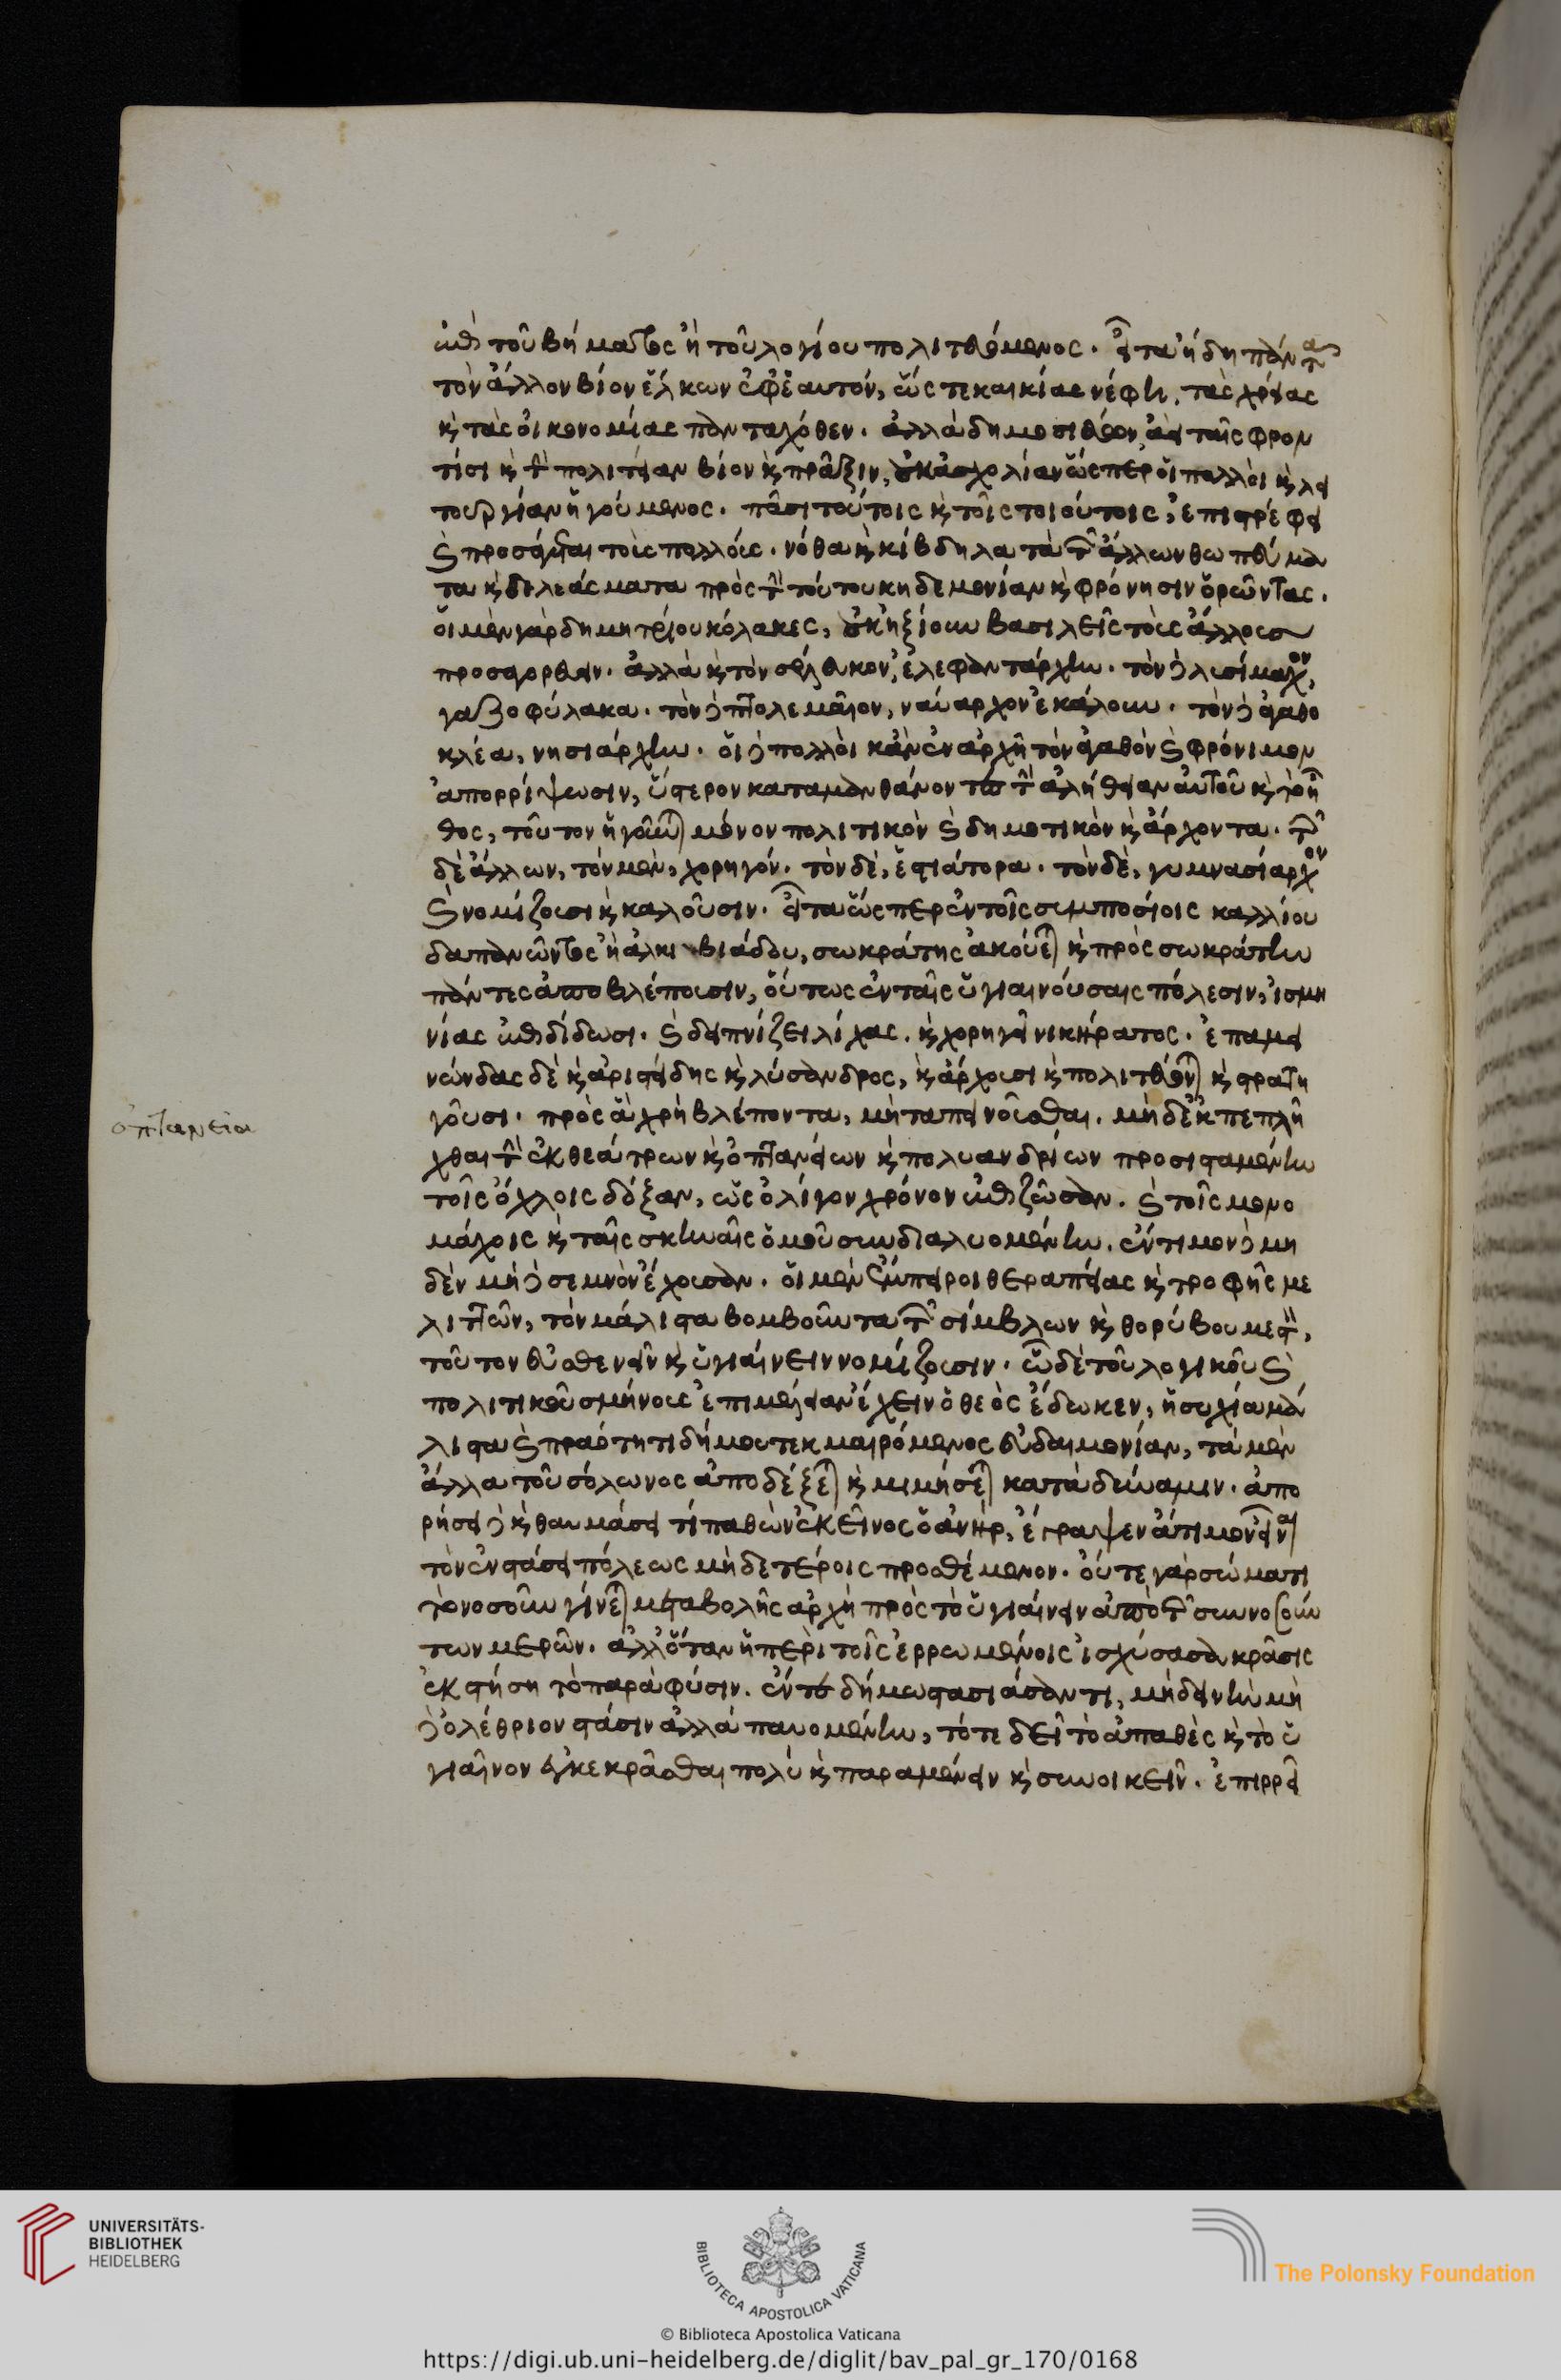 ἐπὶ τοῦ βήματος ἢ τοῦ λογίου πολιτευόμενος. εἶτα ἤδη πάντα
τὸν ἄλλον βίον ἕλκων ἐφ' ἑαυτόν, ὥς τε καικίας νέφη. τὰς χρείας
κ τὰς οἰκονομίας πανταχόθεν. ἀλλὰ δημοσιεύων ἀεὶ ταῖς φρον
τίσι κ τὴν πολιτείαν βίον κ πρᾶξιν, οὐκ ἀσχολίαν ὥςπερ οἱ πολλοὶ κ λει
τουργίαν ἡγούμενος. πᾶσι τούτοις κ τοῖς τοιούτοις, ἐπιστρέφει
κ προσάγεται τοὺς πολλούς. νόθα κ κίβδηλα τὰ τῶν ἄλλων θωπεύμα
τα κ δελεάσματα πρὸς τὴν τούτου κηδεμονίαν κ φρόνησιν ὁρῶντας.
οἱ μὲν γὰρ δημητρίου κόλακες, οὐκ ἠξίουν βασιλεῖς τοὺς ἄλλους
προσαγορεύειν. ἀλλὰ κ τὸν σέλευκον, ἐλεφαντάρχην. τὸν δὲ λυσίμαχον,
γαζοφύλακα. τὸν δὲ πτολεμαῖον, ναύαρχον ἐκάλουν. τὸν δὲ ἀγαθο
κλέα, νησιάρχην. οἱ δὲ πολλοὶ κἂν ἐν ἀρχῇ τὸν ἀγαθὸν κ φρόνιμον
ἀπορρίψωσιν, ὕστερον καταμανθάνοντες τὴν ἀλήθειαν αὐτοῦ κ τὸ ἦ
θος, τοῦτον ἡγοῦνται μόνον πολιτικὸν κ δημοτικὸν κ ἄρχοντα. τῶν
δὲ ἄλλων, τὸν μὲν, χορηγόν. τὸν δὲ, ἑστιάτορα. τὸν δὲ, γυμνασίαρχον
κ νομίζουσι κ καλοῦσιν. εἶτα ὥςπερ ἐν τοῖς συμποσίοις καλλίου
δαπανῶντος ἢ ἀλκιβιάδου, σωκράτης ἀκούεται κ πρὸς σωκράτην
πάντες ἀποβλέπουσιν, οὕτως ἐν ταῖς ὑγιαινούσαις πόλεσιν, ἰσμη
νίας ἐπιδίδωσι. κ δειπνίζει λίχας. κ χορηγεῖ νικήρατος. ἐπαμει
νώνδας δὲ κ ἀριστείδης κ λύσανδρος, κ ἄρχουσι κ πολιτεύονται κ στρατη
γοῦσι. πρὸς ἃ χρὴ βλέποντα, μὴ ταπεινοῦσθαι. μηδ' ἐκπεπλῆ
χθαι τὴν ἐκ θεάτρων κ ὀπτανείων κ πολυανδρίων προσισταμένην
τοῖς ὄχλοις δόξαν, ὡς ὀλίγον χρόνον ἐπιζῶσαν. κ τοῖς μονο
μάχοις κ ταῖς σκηναῖς ὁμοῦ συνδιαλυομένην. ἔντιμον δὲ μη
δὲν μὴ δὲ σεμνὸν ἔχουσαν. οἱ μὲν ἔμπειροι θεραπείας κ τροφῆς με
λιττῶν, τὸν μάλιστα βομβοῦντα τῶν σίμβλων κ θορύβου μεστὸν,
τοῦτον εὐθενεῖν κ ὑγιαίνειν νομίζουσιν. ᾧ δὲ τοῦ λογικοῦ κ
πολιτικοῦ σμήνους ἐπιμέλειαν ἔχειν ὁ θεὸς ἔδωκεν, ἡσυχίᾳ μά
λιστα κ πραότητι δήμου τεκμαιρόμενος εὐδαιμονίαν, τὰ μὲν
ἄλλα τοῦ σόλωνος ἀποδέξεται κ μιμήσεται κατὰ δύναμιν. ἀπο
ρήσει δὲ κ θαυμάσει τί παθὼν ἐκεῖνος ὁ ἀνὴρ, ἔγραψεν ἄτιμον εἶναι
τὸν ἐν στάσει πόλεως μηδετέροις προσθέμενον. οὔτε γὰρ σώματι
τὸ νοσοῦν γίνεται μεταβολῆς ἀρχὴ πρὸς τὸ ὑγιαίνειν ἀπὸ τῶν συννοσούν
των μερῶν. ἀλλ' ὅταν ἡ περὶ τοῖς ἐρρωμένοις ἰσχύσασα κρᾶσις
ἐκστήσῃ τὸ παρὰ φύσιν. ἔν τε δήμῳ στασιάσαντι, μὴ δεινὴν μὴ
δὲ ὀλέθριον στάσιν ἀλλὰ παυομένην, τότε δεῖ τὸ ἀπαθὲς κ τὸ ὑ
γιαῖνον ἐγκεκρᾶσθαι πολὺ κ παραμένειν κ συνοικεῖν. ἐπιρρεῖ
ὀπτανεῖα
UNIVERSITÄTS-
BIBLIOTHEK
HEIDELBERG
BIBLIOTECA APOSTOLICA VATICANA
The Polonsky Foundation
© Biblioteca Apostolica Vaticana
https://digi.ub.uni-heidelberg.de/diglit/bav_pal_gr_170/0168